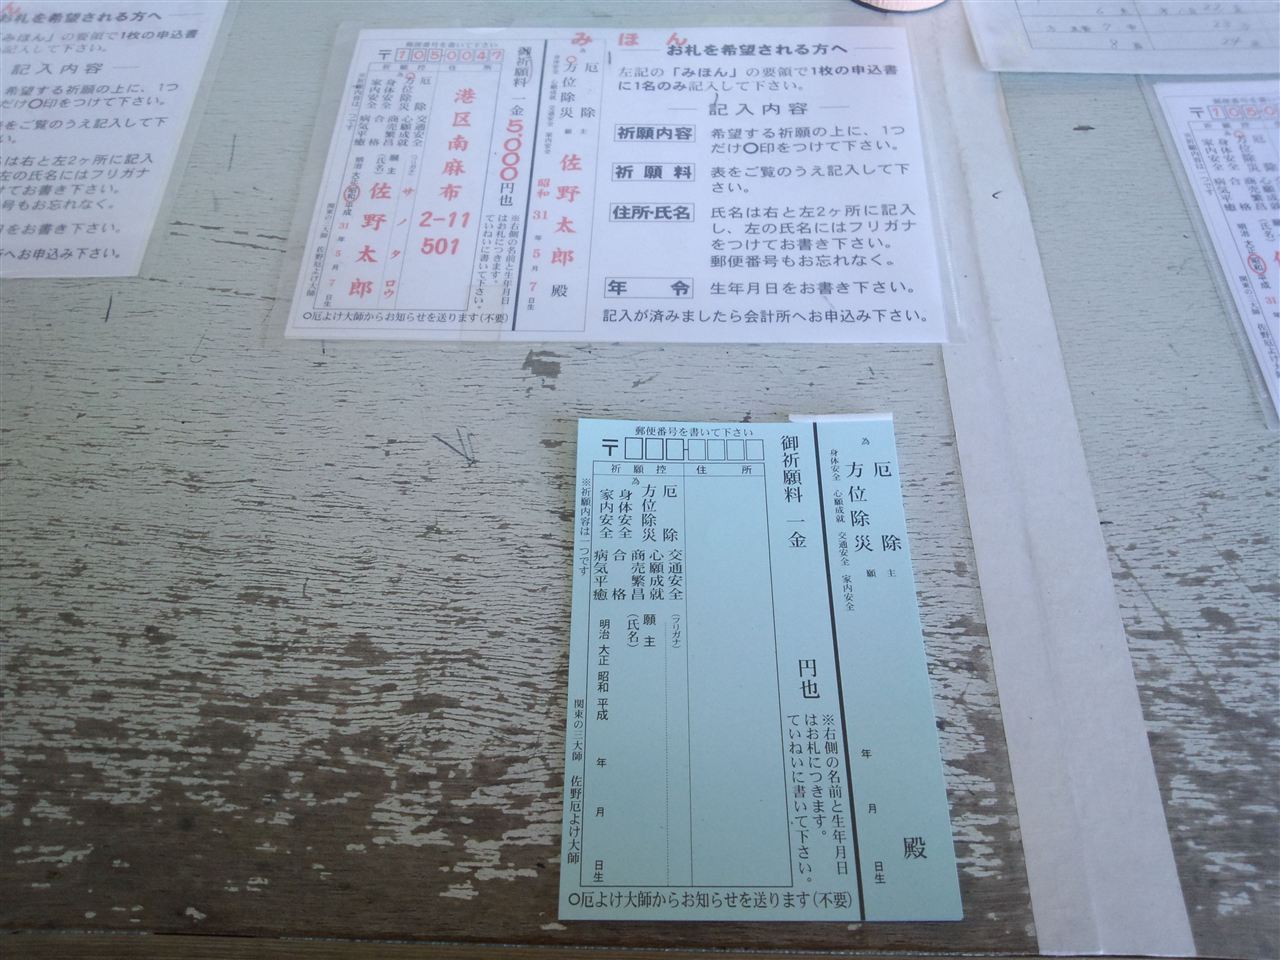 お札を希望される方へ
「みほん」の要領で1枚の申込書
記入して下さい。
記入内容
希望する祈願の上に、1つ
だけ〇印をつけて下さい。
表をご覧のうえ記入して下
さい。
氏名は右と左2ヶ所に記入
左の氏名にはフリガナ
けてお書き下さい。
号もお忘れなく。
をお書き下さい。
所へお申込み下さい。
みほん
お札を希望される方へ
左記の「みほん」の要領で1枚の申込書
に1名のみ記入して下さい。
記入内容
祈願内容 希望する祈願の上に、1つ
だけ〇印をつけて下さい。
祈願料 表をご覧のうえ記入して下
さい。
住所・氏名 氏名は右と左2ヶ所に記入
し、左の氏名にはフリガナ
をつけてお書き下さい。
郵便番号もお忘れなく。
年令 生年月日をお書き下さい。
記入が済みましたら会計所へお申込み下さい。
為
厄除
方位除災
身体安全 心願成就 交通安全 家内安全
願主
佐野太郎 殿
昭和31年5月7日生
御祈願料 一金5,000円也
※右側の名前と生年月日
はお札につきます。
ていねいに書いて下さい。
郵便番号を書いて下さい
〒1050047
祈願控 住所
港区南麻布
2-11
501
為
厄除 交通安全
方位除災 心願成就
身体安全 商売繁昌
家内安全 合格
病気平癒
※祈願内容は一つです
(フリガナ) サノタロウ
願主
(氏名) 佐野太郎
明治 大正 昭和 平成 31年5月7日生
関東の三大師 佐野厄よけ大師
〇厄よけ大師からお知らせを送ります(不要)
為
厄除
方位除災
身体安全 心願成就 交通安全 家内安全
願主
殿
年 月 日生
御祈願料 一金 円也
※右側の名前と生年月日
はお札につきます。
ていねいに書いて下さい。
郵便番号を書いて下さい
〒
祈願控 住所
為
厄除 交通安全
方位除災 心願成就
身体安全 商売繁昌
家内安全 合格
病気平癒
※祈願内容は一つです
(フリガナ)
願主
(氏名)
明治 大正 昭和 平成 年 月 日生
関東の三大師 佐野厄よけ大師
〇厄よけ大師からお知らせを送ります(不要)